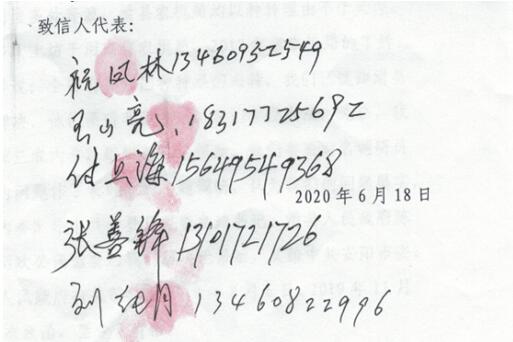 致信人代表:
祝凤林13460932549
王山亮、18317725692
付兵海15649549368
2020年6月18日
张善锋1301721726
刘纯月13460822996